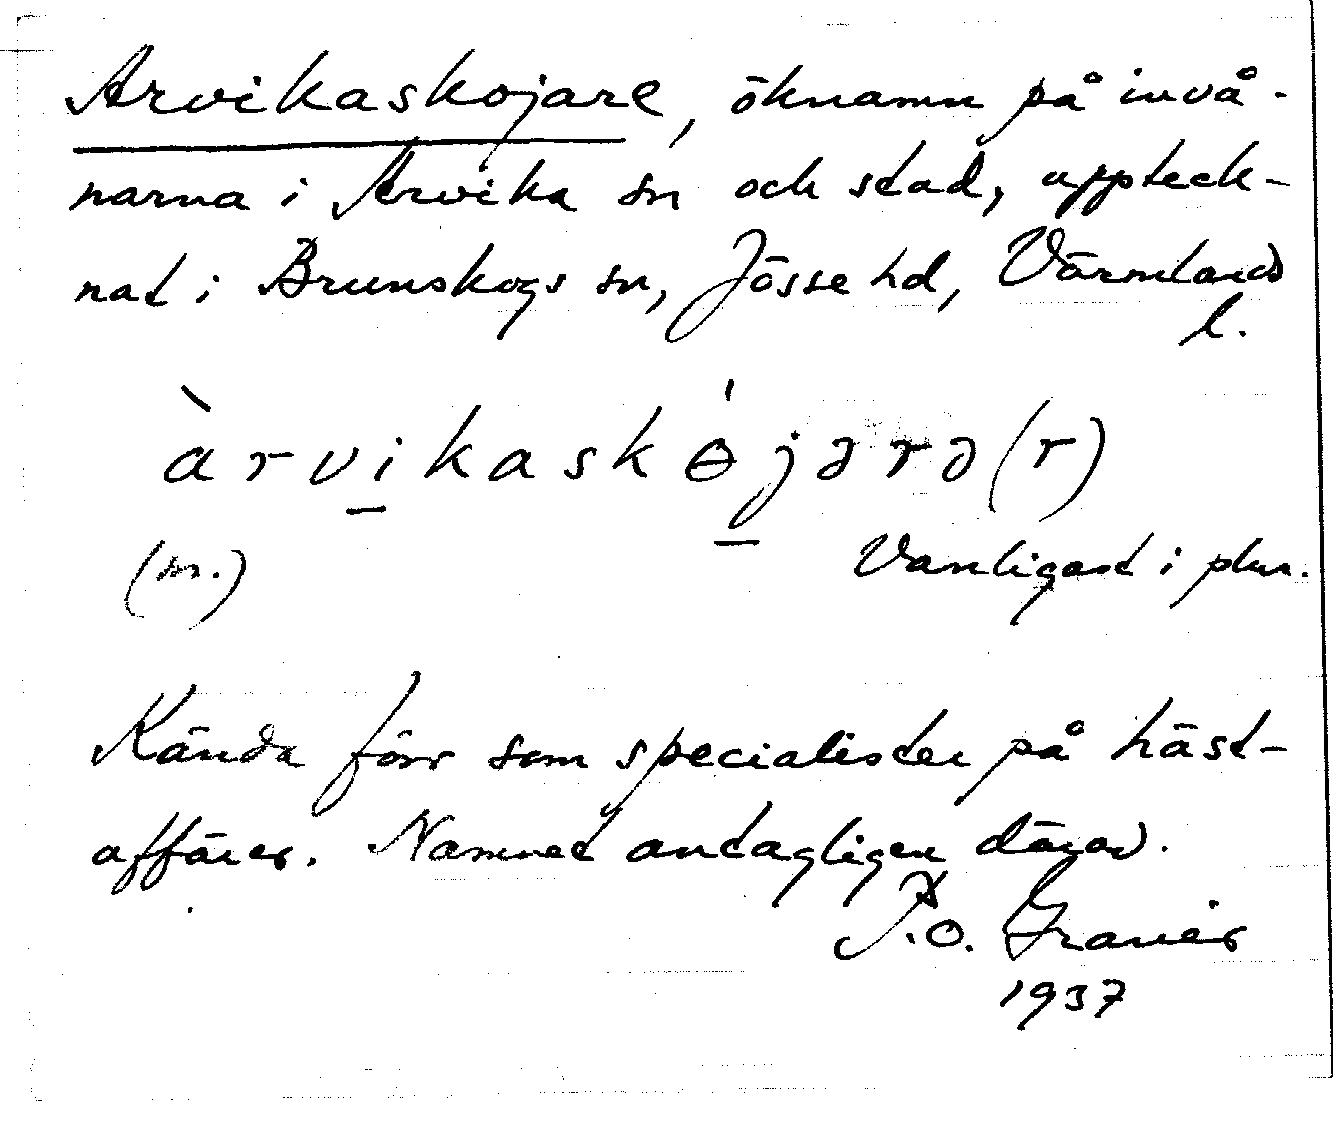 Arvikaskojare, öknamn på invå-
narna i Arvika sn och stad, uppteck-
nat i Brunskogs sn, Jösse hd, Värmlands
l.
àrvi̠kaskɵ́j̠ərə(r)
(m.) Vanligast i plur.
Kända förr som specialister på häst-
affärer. Namnet antagligen därav.
1937